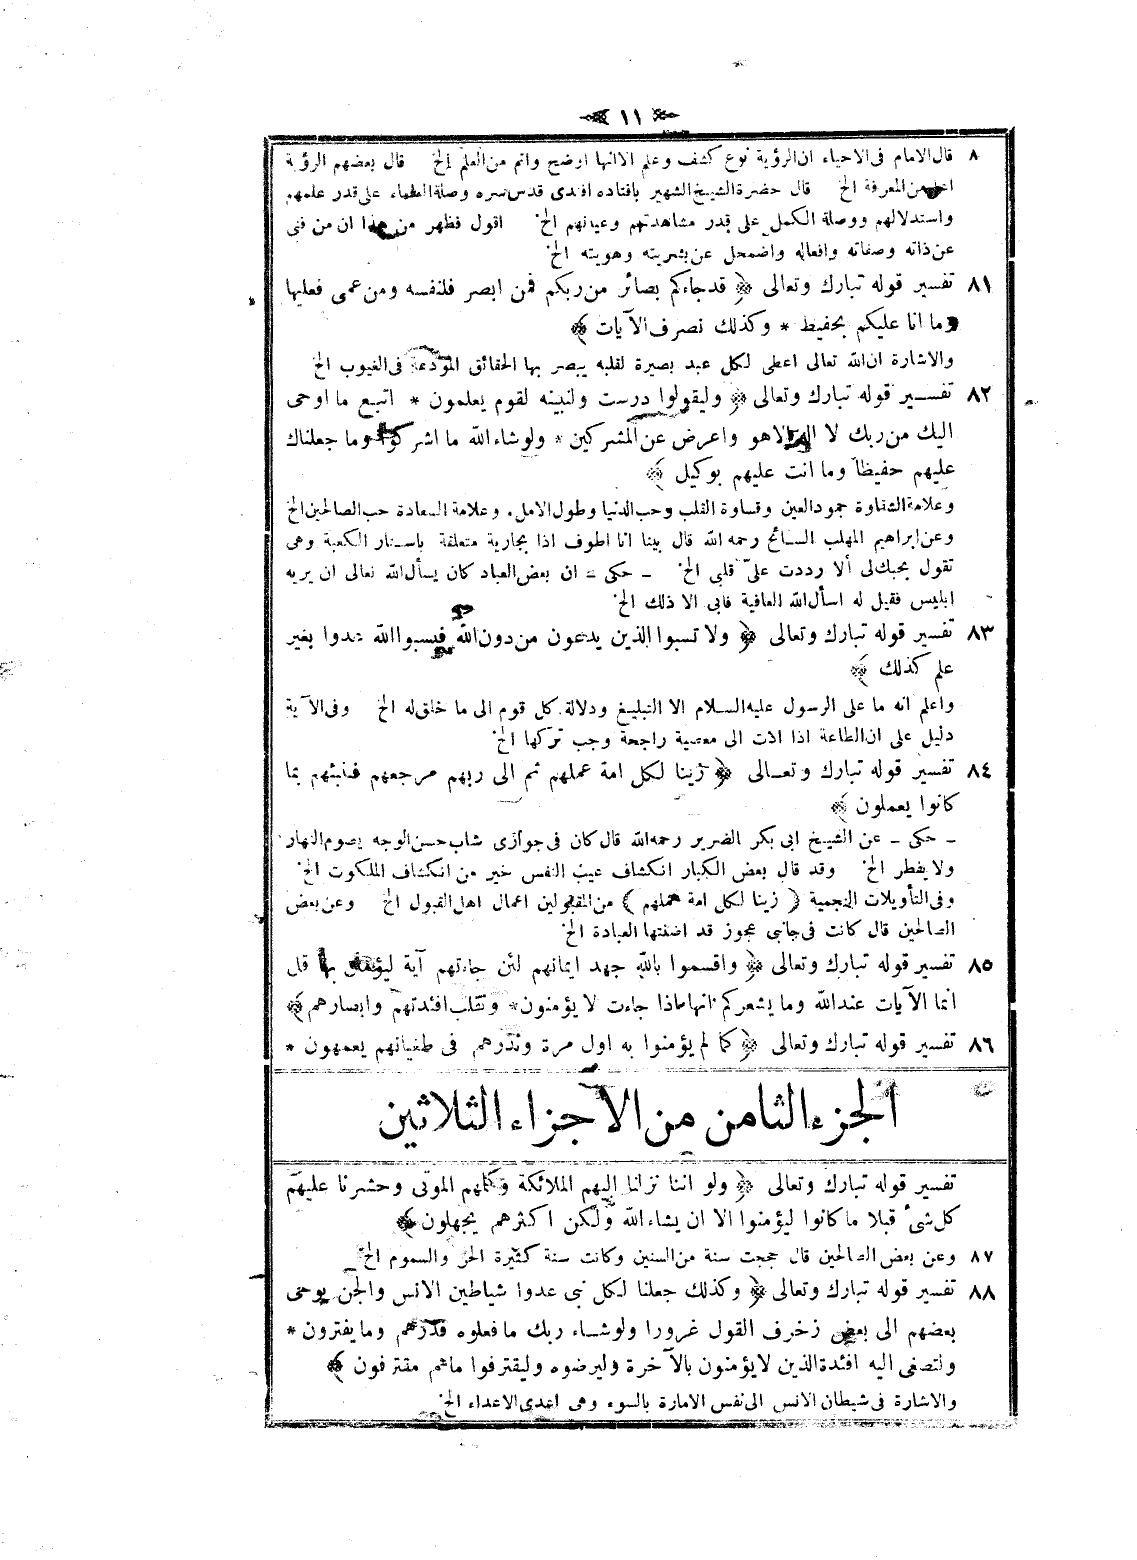 ١١
٨ قال الامام فى الاحياء ان الرؤية نوع كشف وعلم الا انها اوضح واتم من العلم الخ قال بعضهم الرؤية
من المعرفة الخ قال حضرة الشيخ الشهير بافتاده افندى قدس سره وصلة العلماء على قدر علمهم
واستدلالهم ووصلة الكمل على قدر مشاهدتهم وعيانهم الخ اقول فظهر من هذا ان من فنى
عن ذاته وصفاته وافعاله واضمحل عن بشريته وهويته الخ
٨١ تفسير قوله تبارك وتعالى ﴿ قد جاءكم بصائر من ربكم فمن ابصر فلنفسه ومن عمى فعليها
وما انا عليكم بحفيظ * وكذلك نصرف الآيات ﴾
والاشارة ان الله تعالى اعطى لكل عبد بصيرة لقلبه يبصر بها الحقائق المودعة فى الغيوب الخ
٨٢ تفسير قوله تبارك وتعالى ﴿ وليقولوا درست ولنبينه لقوم يعلمون * اتبع ما اوحى
اليك من ربك لا اله الا هو واعرض عن المشركين * ولو شاء الله ما اشركوا وما جعلناك
عليهم حفيظا وما انت عليهم بوكيل ﴾
وعلامة الشقاوة جمود العين وقساوة القلب وحب الدنيا وطول الامل. وعلامة السعادة حب الصالحين الخ
وعن ابراهيم المهلب السائح رحمه الله قال بينا انا اطوف اذا بجارية متعلقة باستار الكعبة وهى
تقول بحبك لى ألا رددت علىّ قلبى الخ ـ حكى ـ ان بعض العباد كان يسأل الله تعالى ان يريه
ابليس فقيل له اسأل الله العافية فابى الا ذلك الخ
٨٣ تفسير قوله تبارك وتعالى ﴿ ولا تسبوا الذين يدعون من دون الله فيسبوا الله عدوا بغير
علم كذلك ﴾
واعلم انه ما على الرسول عليه السلام الا التبليغ ودلالة كل قوم الى ما خلق له الخ وفى الآية
دليل على ان الطاعة اذا ادت الى معصية راجحة وجب تركها الخ
٨٤ تفسير قوله تبارك وتعالى ﴿ زينا لكل امة عملهم ثم الى ربهم مرجعهم فينبئهم بما
كانوا يعملون ﴾
ـ حكى ـ عن الشيخ ابى بكر الضرير رحمه الله قال كان فى جوارى شاب حسن الوجه يصوم النهار
ولا يفطر الخ وقد قال بعض الكبار انكشاف عيب النفس خير من انكشاف الملكوت الخ
وفى التأويلات النجمية ( زينا لكل امة عملهم ) من المقبولين اعمال اهل القبول الخ وعن بعض
الصالحين قال كانت فى جانبى عجوز قد اضنتها العبادة الخ
٨٥ تفسير قوله تبارك وتعالى ﴿ واقسموا بالله جهد ايمانهم لئن جاءتهم آية ليؤمنن بها قل
انما الآيات عند الله وما يشعركم انها ماذا جاءت لا يؤمنون * ونقلب افئدتهم وابصارهم ﴾
٨٦ تفسير قوله تبارك وتعالى ﴿ كما لم يؤمنوا به اول مرة ونذرهم فى طغيانهم يعمهون *
الجزء الثامن من الاجزاء الثلاثين
تفسير قوله تبارك وتعالى ﴿ ولو اننا نزلنا اليهم الملائكة وكلمهم الموتى وحشرنا عليهم
كل شئ قبلا ما كانوا ليؤمنوا الا ان يشاء الله ولكن اكثرهم يجهلون ﴾
٨٧ وعن بعض الصالحين قال حججت سنة من السنين وكانت سنة كثيرة الحر والسموم الخ
٨٨ تفسير قوله تبارك وتعالى ﴿ وكذلك جعلنا لكل نبى عدوا شياطين الانس والجن يوحى
بعضهم الى بعض زخرف القول غرورا ولو شاء ربك ما فعلوه فذرهم وما يفترون *
ولتصغى اليه افئدة الذين لا يؤمنون بالآخرة وليرضوه وليقترفوا ما هم مقترفون ﴾
والاشارة فى شيطان الانس الى نفس الامارة بالسوء وهى اعدى الاعداء الخ